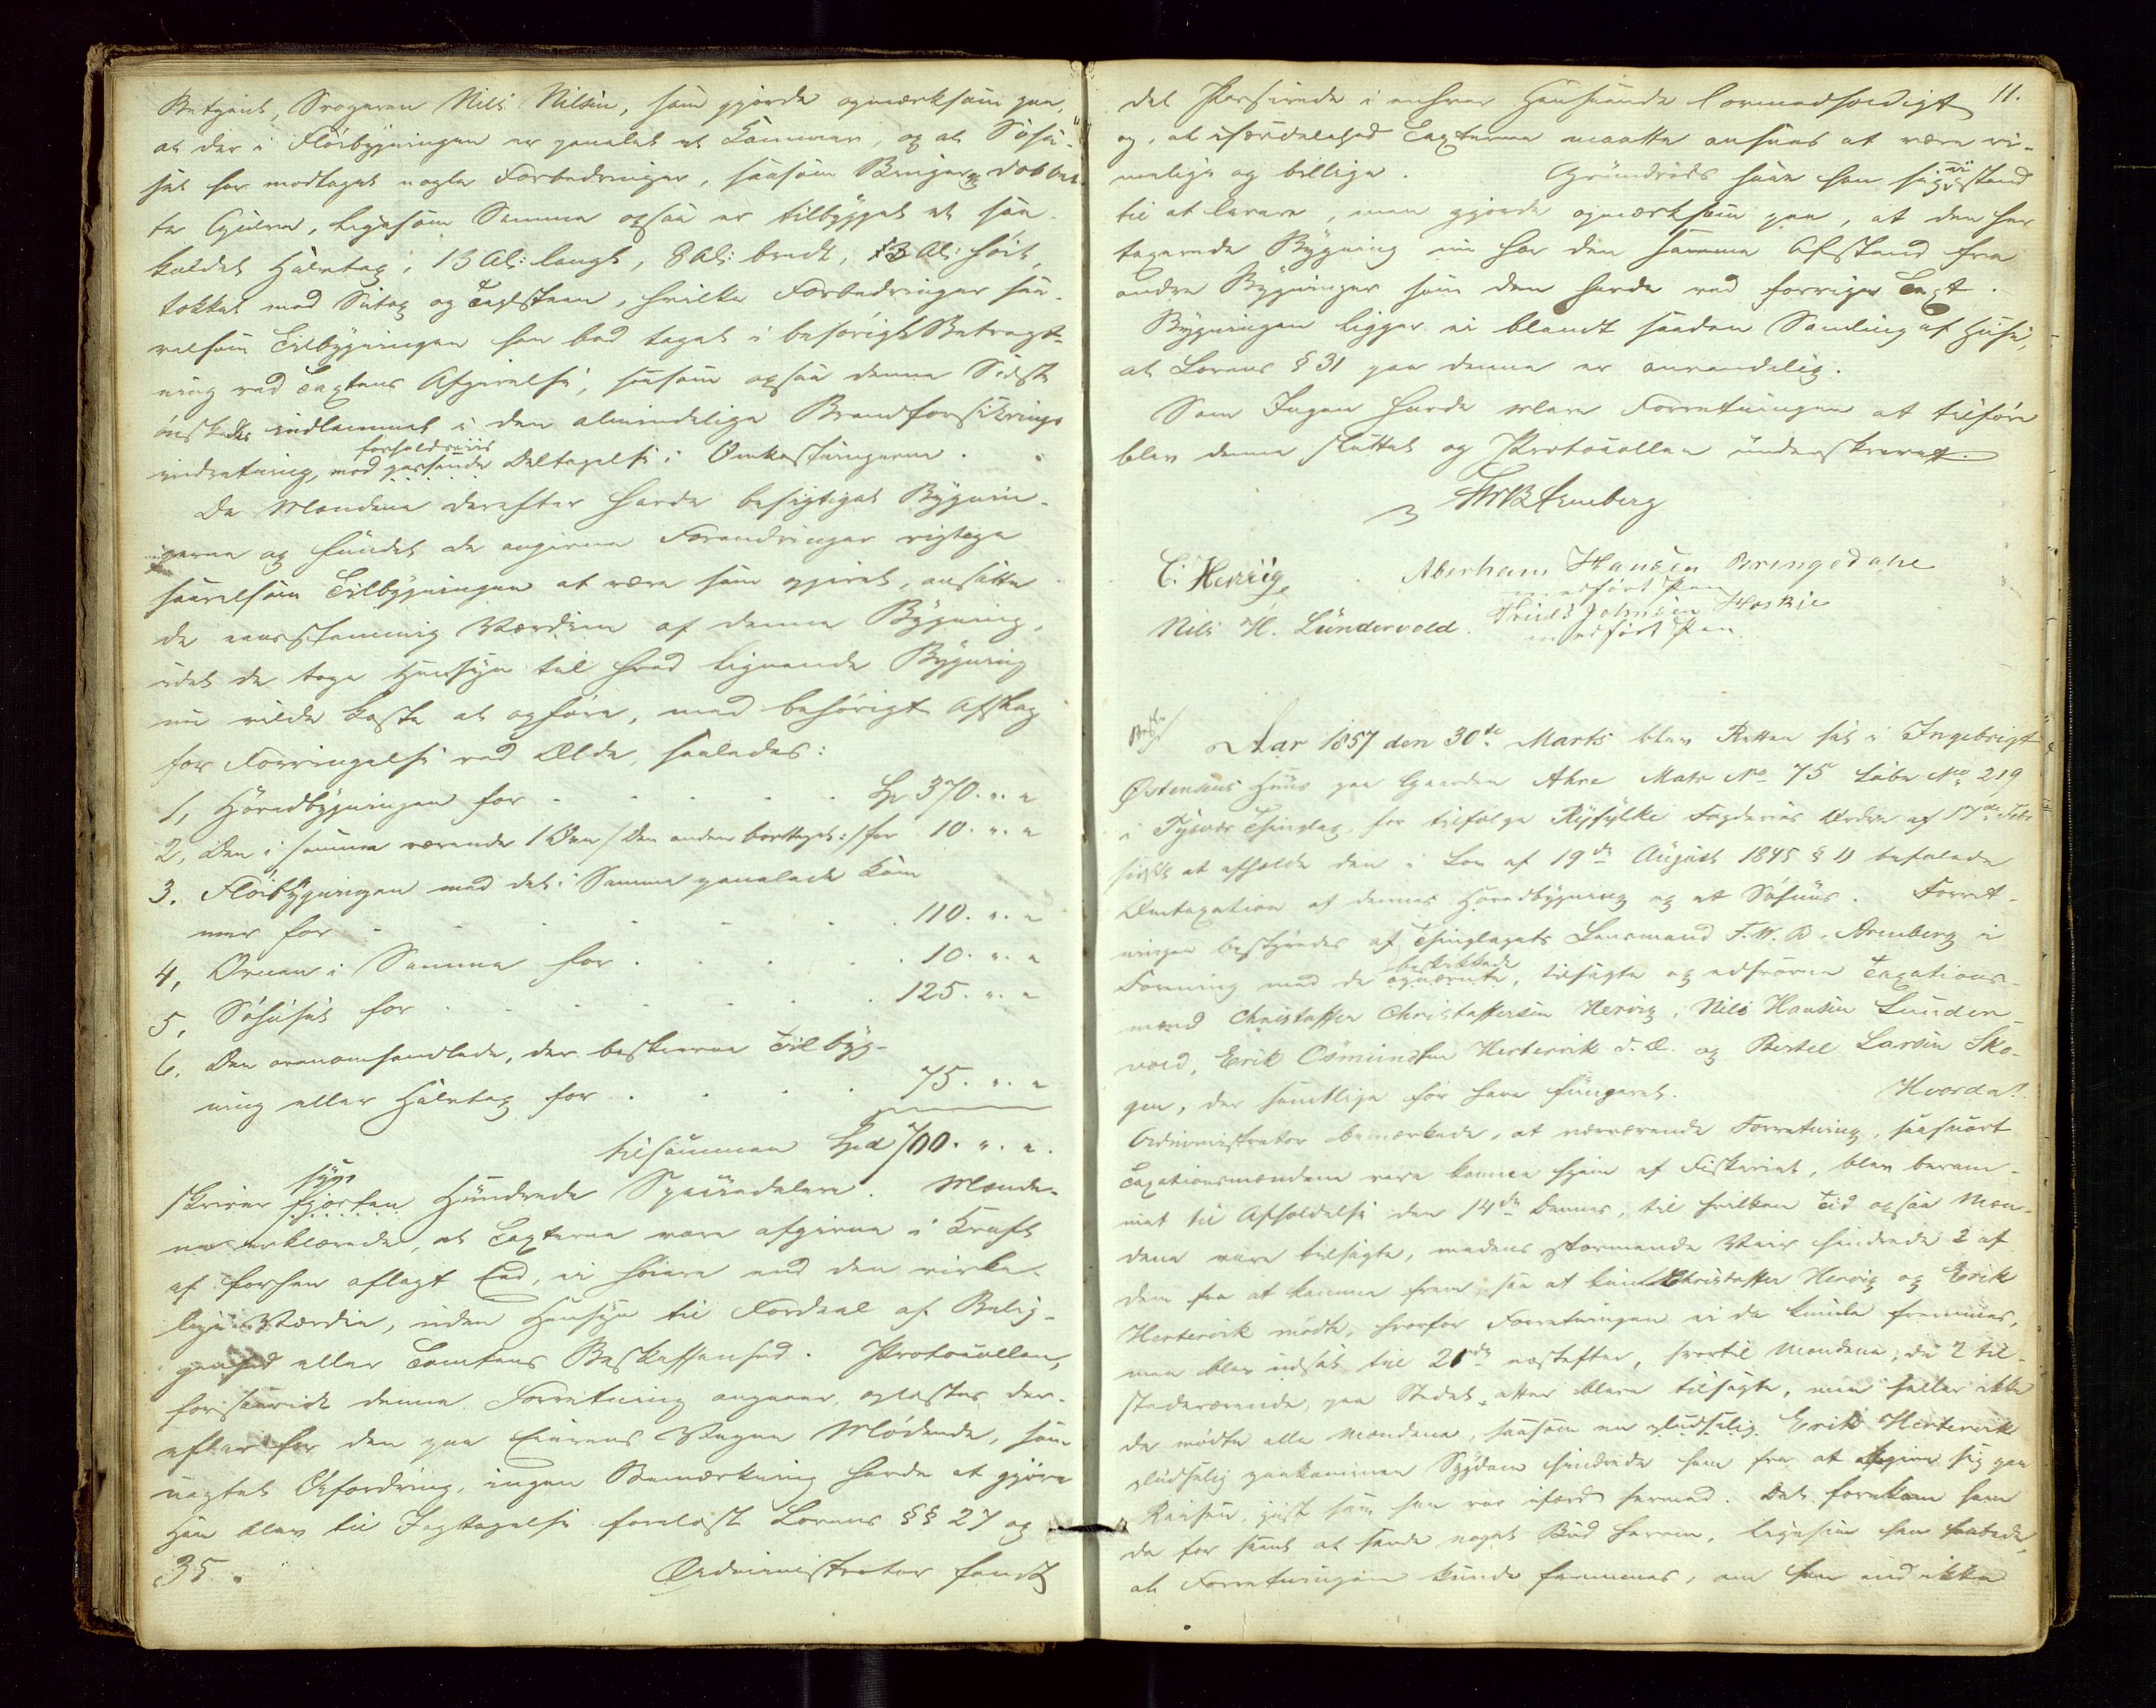 Betjent, Nils Nilsen, som gjorde opmærksom paa,
at der i Fløibygningen er panelet et Kammer, og at Søhu-
set har modtaget nogle Forbedringer, saasom Bringer og dobbel-
te Gulve, ligesom Samme ogsaa er tilbygget et saa-
kaldet Halvtag, 13 Al: langt, 8 Al: bredt, 3 Al: høit,
tækket med og Taglsteen, hvilke Forbedringer saa-
velsom Tilbygningen han bad taget i behørigt Betragt-
ning ved Taxtens Afgivelse, saasom ogsaa denne Sidste
ønskedes indlemmet i den almindelige Brandforsikrings
forholdsviis
indretning, med passende Deltagelse i Omkostningerne.
Da Mændene derefter havde besigtiget Bygnin-
gerne og fundet de angivne Forandringer rigtige
saavelsom Tilbygningen at være som opgivet, ansatte
de eensstemmig Værdien af denne Bygning,
idet de toge Hensyn til hvad lignende Bygning
nu vilde koste at opføre, med behørigt Afslag
for Forringelse ved Ælde, saaledes:
1, Hovedbygningen for . . . . . Spd 370. " "
2, Den i samme værende 1 Ovn /: den anden borttaget :/ for 10. " "
3. Fløibygningen med det i Samme panelede Kam
mer for . . . . . . 110. " "
4, Ovnen i Samme for . . . . . 10. " "
5, Søhuset for . . . . . . 125. " "
6. Den ovenomhandlede, der beskrevne Tilbyg-
ning eller Halvtag for . . . 75. " "
tilsammen Spd 700. " "
syv
skriver fjorten Hundrede Speciedalere. Mænde-
ne erklærede, at Taxterne vare afgivne i Kraft
af forhen aflagt Eed, ei høiere end den virke-
lige Værdie, uden Hensyn til Fordeel af Belig-
genhed eller Tomtens Beskaffenhed. Protocollen,
forsaavidt denne Forretning angaaer, oplæstes der-
efter for den paa Eierens Vegne Mødende, som
uagtet Opfordring, ingen Bemærkning havde at gjøre
Han blev til Iagttagelse forelæst Lovens §§ 27 og
35. Administrator fandt
11.
det Passerede i enhver Henseende lovmedholdigt
og, at Taxterne maatte ansees at være ri-
melige og billige. Grundrids saae han sig ei istand
til at levere, men gjorde opmærksom paa, at den her
taxerede Bygning nu har den samme Afstand fra
andre Bygninger som den havde ved forrige Taxt.
Bygningen ligger ei blandt saadan Samling af Huse,
at Lovens § 31 paa denne er anvendelig.
Som Ingen havde videre Forretningen at tilføre
blev denne sluttet og Protocollen underskrevet.
FWB Arenberg
C. Hervig Aberham Hansen Bringedahl
medført Pen
Nils H. Lundervold. Johnsen Hoskie
medført Pen.
Aar 1857 den 30te Marts blev Retten sat i Ingebrigt
Østensens Huus paa Gaarden Ahre Matr No 75 Løbe No 219
i Tysvær Thinglag, for tilfølge Ryfylke Fogderies Ordre af 17de Febr
sidst at afholde den i Lov af 19de August 1845 § 11 befalede
Omtaxation af dennes Hovedbygning og et Søhuus. Forret-
ningen bestyredes af Thinglagets Lensmand F. W. B. Arenberg i
beskikkede
Forening med de opnævnte, tilsagte og edsvorne Taxations-
mænd Christoffer Christoffersen Hervig, Nils Hansen Lunder-
vold, Erik Osmundsen Hertervik d. Æ. og Bertel Larsen Sko-
gen, der samtlige før have fungeret. Hvorda!
Administrator bemærkede, at nærværende Forretning, saasnart
Taxationsmændene vare komne hjem af Fiskeriet, blev beram-
met til Afholdelse den 14de Dennes, til hvilken Tid ogsaa Mæn-
dene vare tilsagte, medens stormende Veir hindrede 2 af
dem fra at komme frem, saa at kun Christoffer Hervig og Erik
Hertervik mødte, hvorfor Forretningen ei da kunde fremmes,
men blev udsat til 21de næstefter, hvortil Mændene, de 2 til-
stedeværende, paa Stedet, atter bleve tilsagte, men heller ikke
da mødte alle Mændene, saasom en pludselig Erik Hertervik
pludselig paakommen Sygdom hindrede ham fra at begive sig paa
Reisen, just som han var ifærd hermed. Det forekom ham
da for seent at sende noget Bud herom, ligesom han haabede,
at Forretningen kunde fremmes, om han end ikke